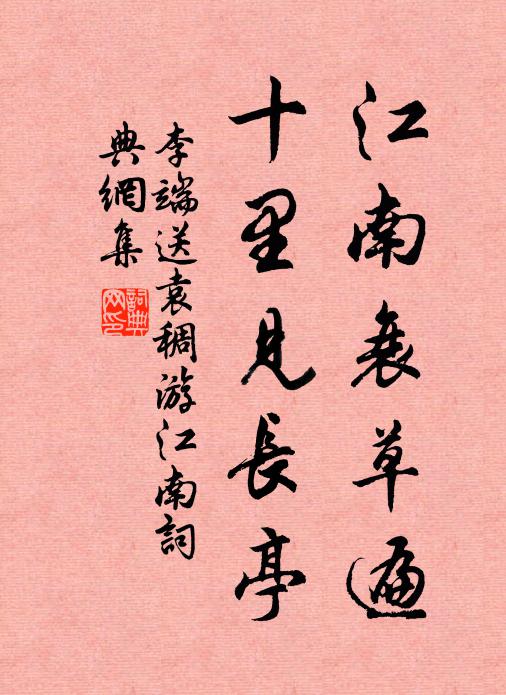 江南衰草遍
十里見長亭
李端送袁稠游江南詞
典網集
詞典
网印